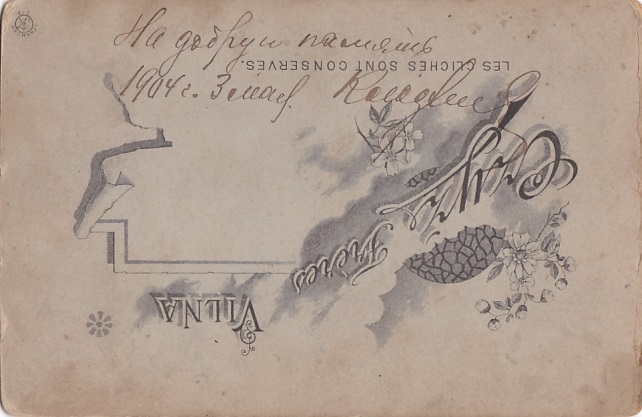 На добрую память
LES CLICHES SONT CONSERVES.
1904 г. 3 мая
Frères
VILNA